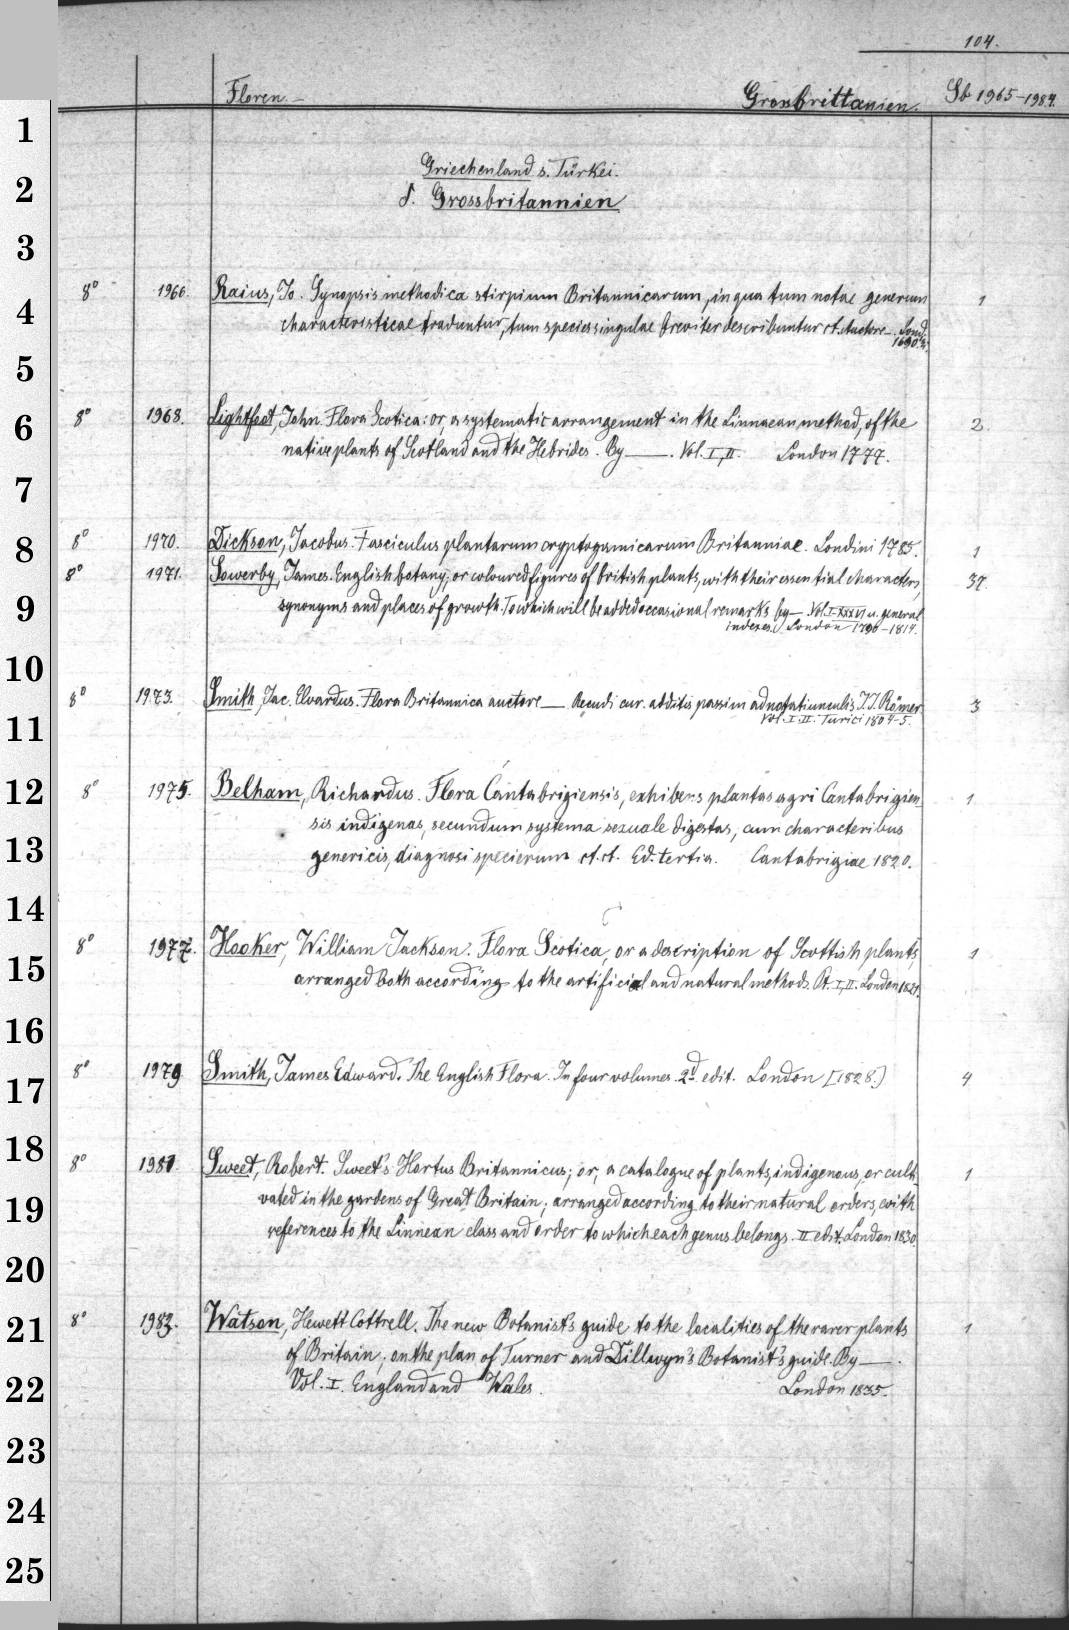 104.
Floren.— Grosbrittanien. Sb 1965–1984.
Griechenland s. Türkei.
δ. Grossbritannien
8° 1966. Raius, Jo. Synopsis methodica stirpium Britannicarum, in qua tum notae generum 1
characteristicae traduntur, tum species singulae breviter describuntur ct. Auctore —. Lond.
1690.
8° 1968. Lightfoot, John. Flora Scotica: or a systematic arrangement in the Linnaean method, of the 2.
native plants of Scotland and the Hebrides. By ——. Vol. I, II. London 1777.
8° 1970. Dickson, Jacobus. Fasciculus plantarum cryptogamicarum Britanniae. Londini 1785. 1
8° 1971. Sowerby, James. English botany; or coloured figures of british plants, with their essential characters, 37.
synonyms and places of growth. To which will be added occasional remarks by — Vol. I–XXXVI u. general
indexes. London 1790–1814.
8° 1973. Smith, Jac. Edvardus. Flora Britannica auctore —— Recudi cur. additis passim adnotatiunculis J.J. Römer 3
Vol. I. II. Turici 1804–5.
8° 1975. Belham, Richardus. Flora Cantabrigiensis, exhibens plantas agri Cantabrigien- 1
sis indigenas, secundum systema sexuale digestas, cum characteribus
genericis, diagnosi specierum ct. ct. Ed. tertia. Cantabrigiae 1820.
8° 1977. Hooker, William Jackson. Flora Scotica, or a description of Scottish plants, 1
arranged both according to the artificial and natural methods. Pt. I, II. London 1821.
8° 1979 Smith, James Edward. The English Flora. In four volumes. 2d edit. London [1828.] 4
8° 1981. Sweet, Robert. Sweet's Hortus Britannicus; or, a catalogue of plants, indigenous, or culti- 1
vated in the gardens of Great Britain; arranged according to their natural orders, with
references to the Linnean class and order to which each genus belongs. II edit. London 1830.
8° 1983. Watson, Hewett Cottrell. The new Botanist's guide to the localities of the rarer plants 1
of Britain; on the plan of Turner and Dillwyn's Botanist's guide. By ——.
Vol. I. England and Wales. London 1835.
1
2
3
4
5
6
7
8
9
10
11
12
13
14
15
16
17
18
19
20
21
22
23
24
25